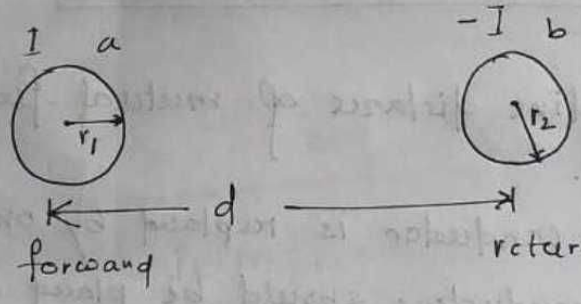 I a -I b
r₁ r₂
d
forward retur